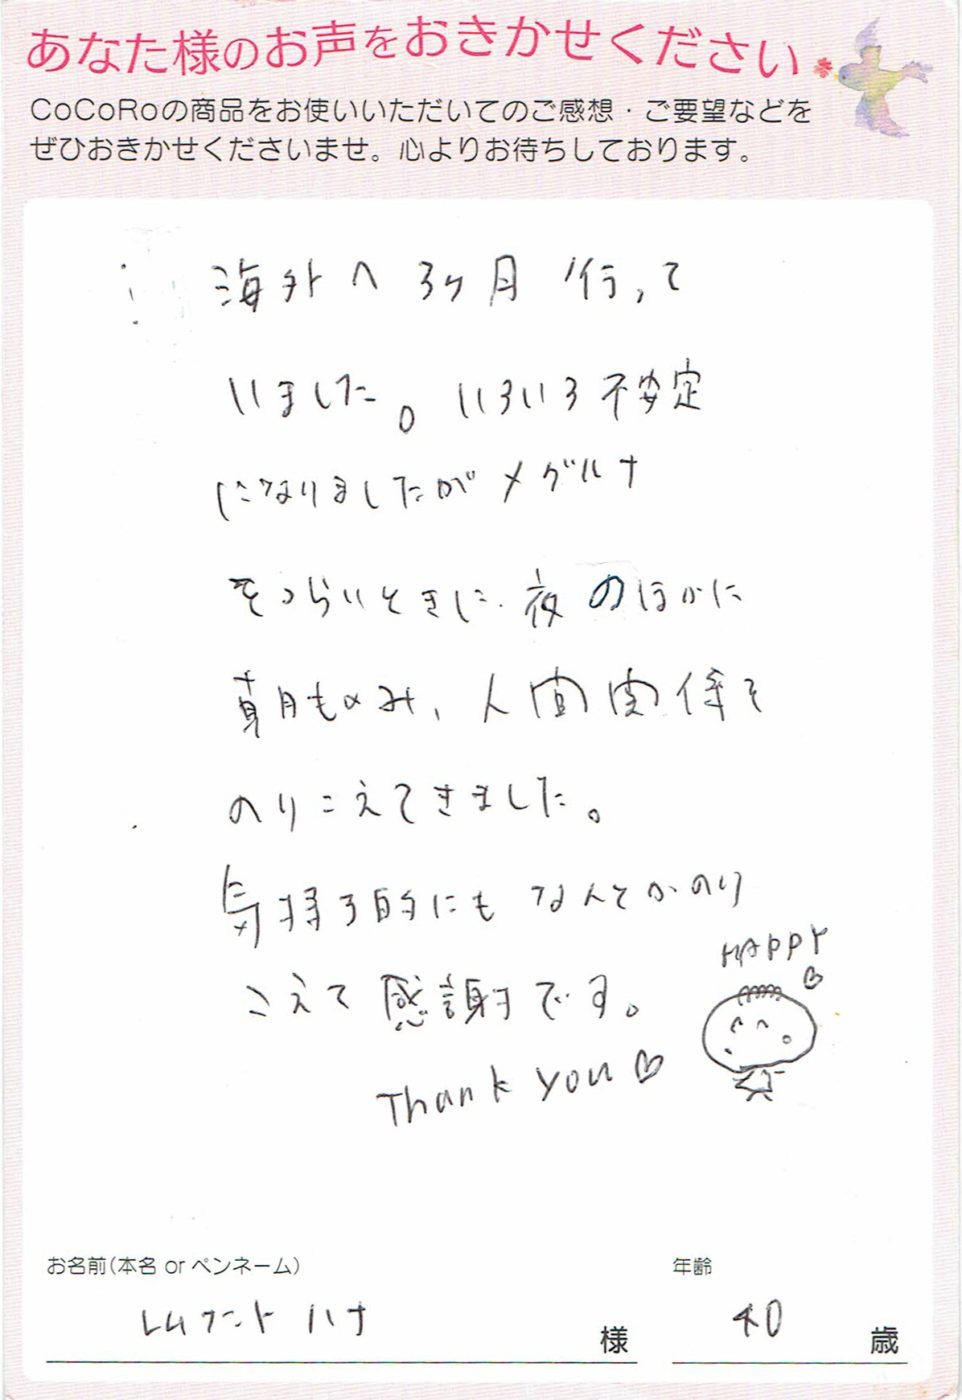 あなた様のお声をおきかせください
CoCoRoの商品をお使いいただいてのご感想・ご要望などを
ぜひおきかせくださいませ。心よりお待ちしております。
海外へ3ヶ月行って
いました。いろいろ不安定
になりましたがメグルナ
をつらいときに夜のほかに
朝ものみ、人間関係を
のりこえてきました。
気持ち的にもなんとかのり
こえて感謝です。
HAPPY
Thank you
お名前(本名 or ペンネーム)
年齢
ハナ
様
40
歳